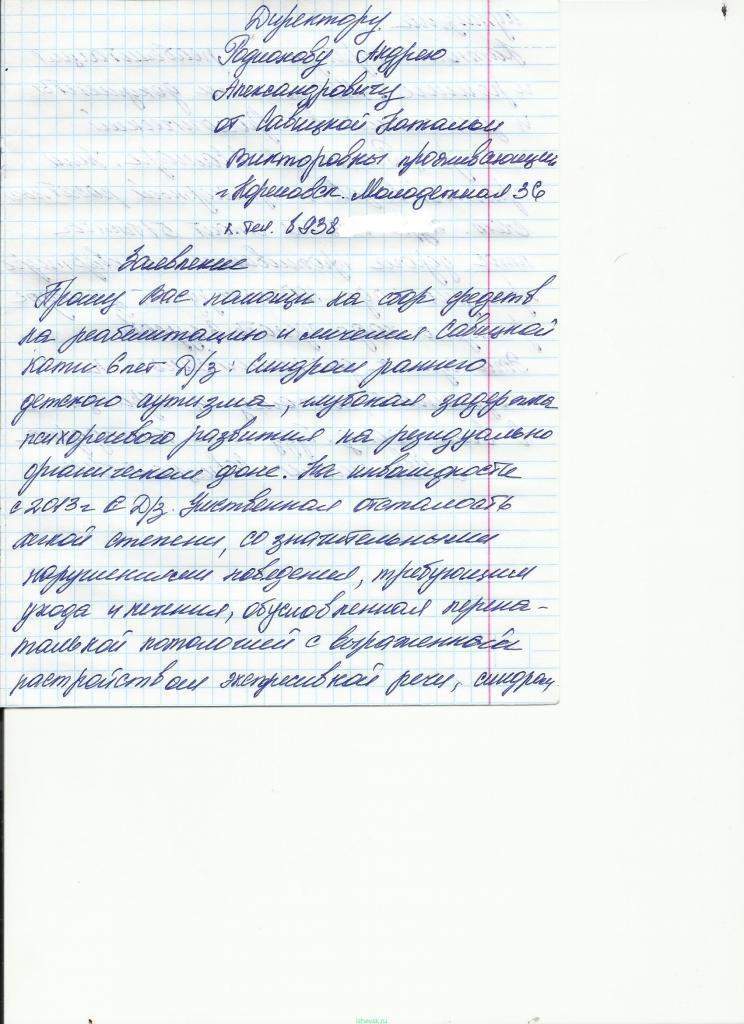 Директору
Родионову Андрею
Александровичу
от Савицкой Натальи
Викторовны проживающей
г Кореновск. Молодежная 36
к. тел. 8938
Заявление
Прошу Вас помощи на сбор средств
на реабелитацию и личения Савицкой
Кати 6 лет Д/з: Синдром раннего
детского аутизма, глубокая задержка
психоречевого развития на резидуально
органическом фоне. На инвалидности
с 2013 г с Д/з. Умственная отсталость
легкой степени, со значительными
нарушениями поведения, требующими
ухода и лечения, обусловленная перена-
тальной потологией с выраженным
растройством экспресивной речи, синдром
lahevsk.ru